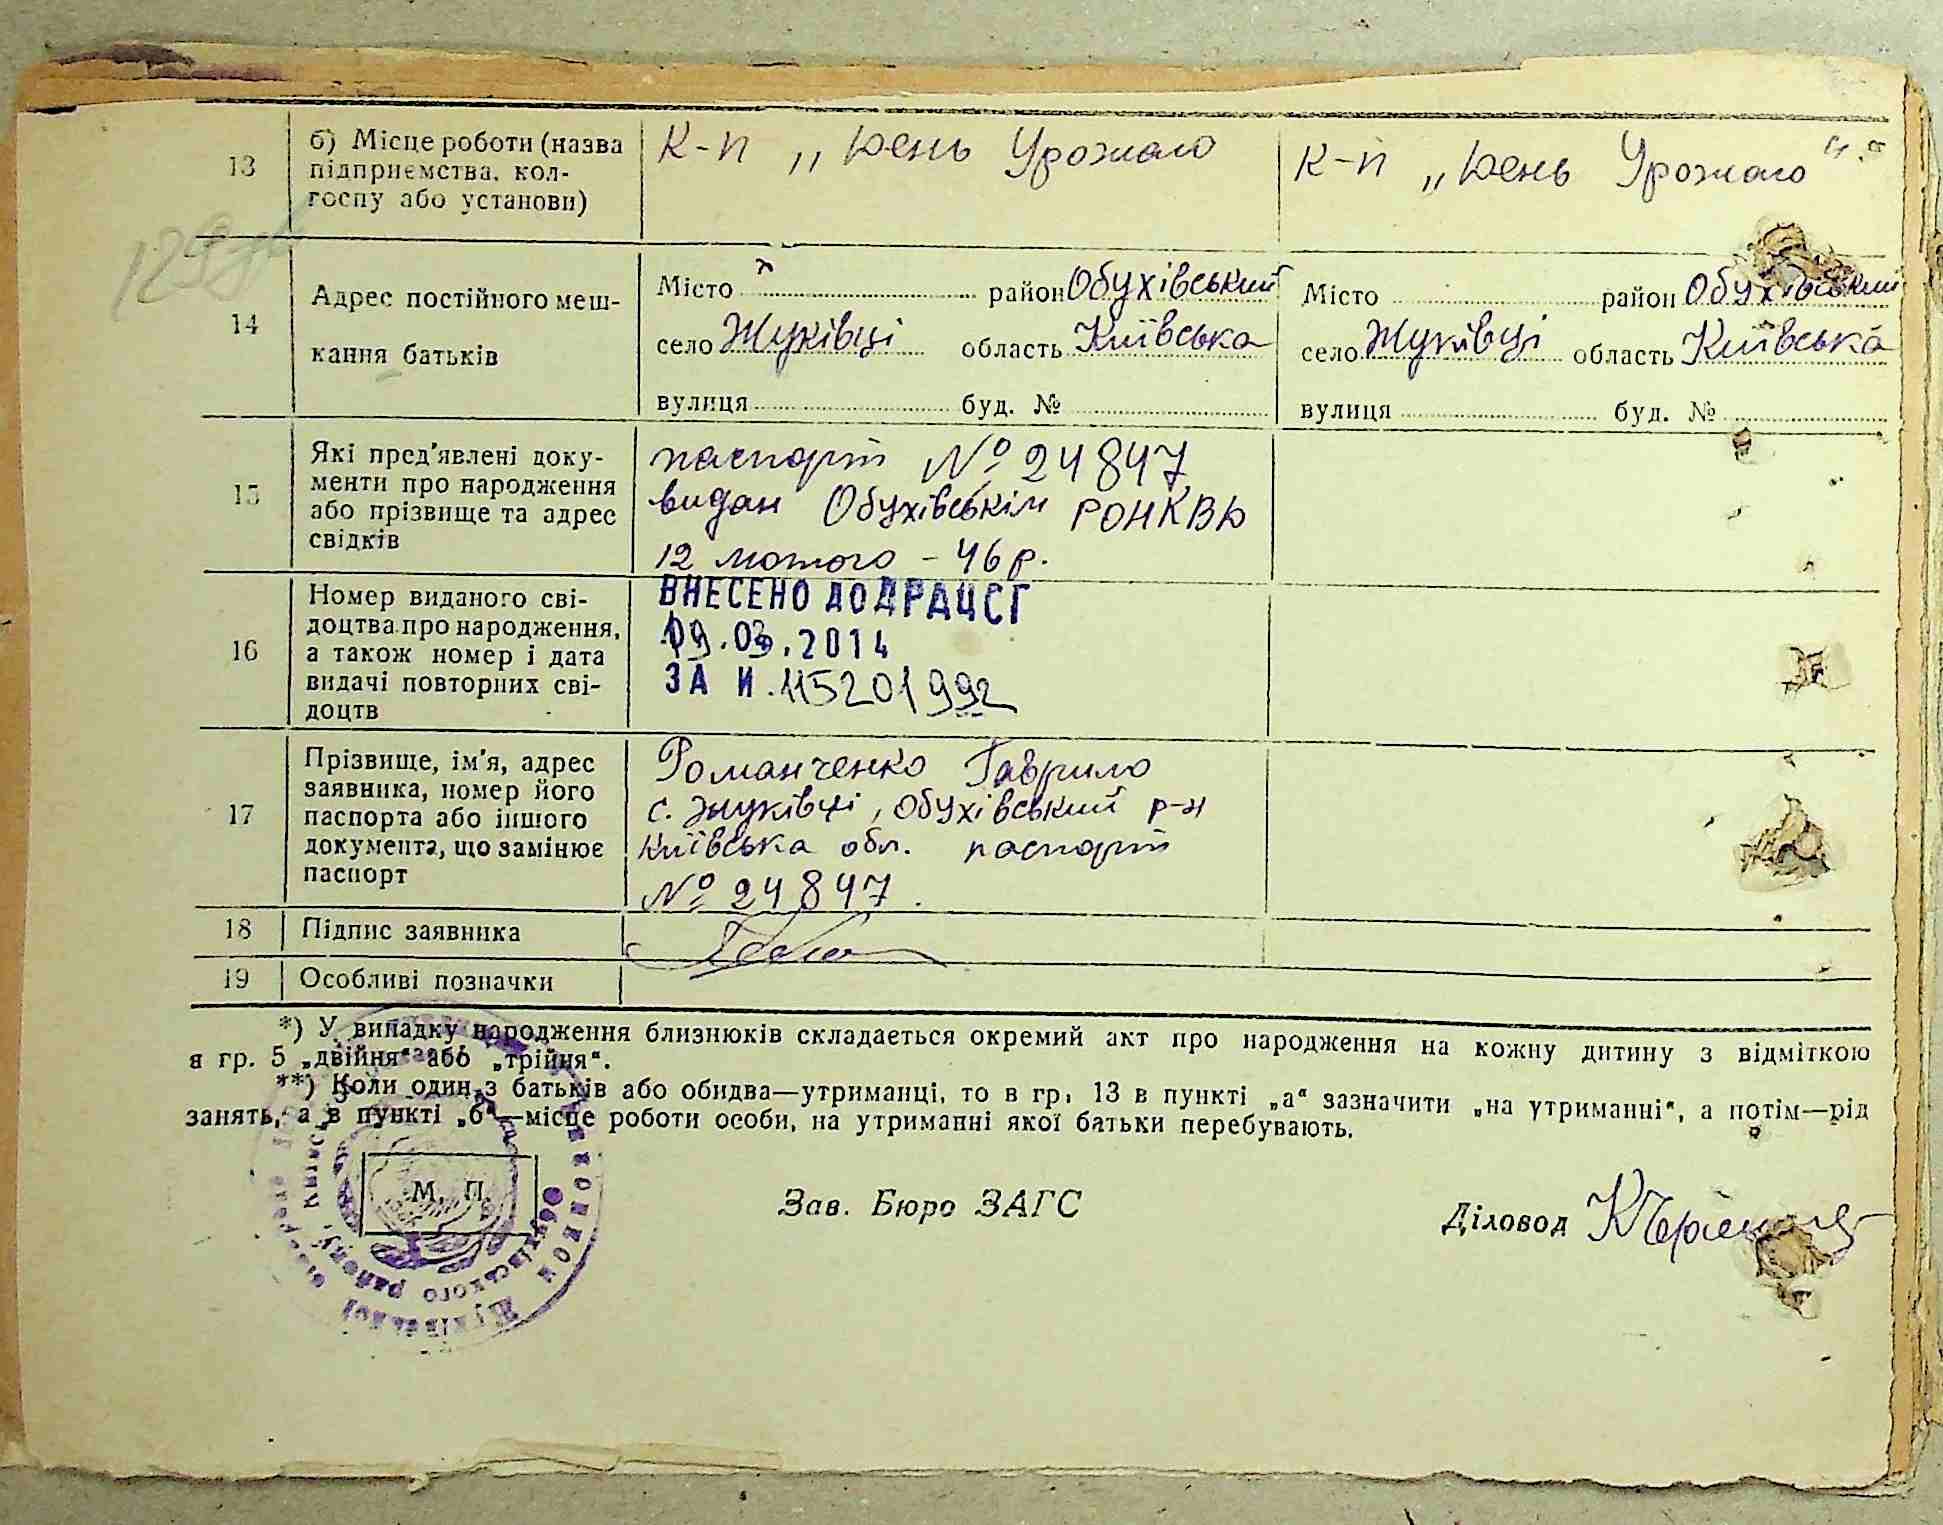 13
б) Місце роботи (назва
підприємства, кол-
госпу або установи)
К-п „День Урожаю
К-п „День Урожаю"
14
Адрес постійного меш-
кання батьків
Місто район Обухівський
село Жуківці область Київська
вулиця буд. №
Місто район Обухівський
село Жуківці область Київська
вулиця буд. №
15
Які пред'явлені доку-
менти про народження
або прізвище та адрес
свідків
паспорт № 24847
видан Обухівськім РОНКВД
12 лютого - 46 р.
16
Номер виданого сві-
доцтва про народження,
а також номер і дата
видачі повторних сві-
доцтв
ВНЕСЕНО ДО ДРАЦСГ
09.03.2014
ЗА И. 115201992
17
Прізвище, ім'я, адрес
заявника, номер його
паспорта або іншого
документа, що замінює
паспорт
Романченко Гаврило
с. Жуківці, Обухівський р-н
Київська обл. паспорт
№ 24847.
18
Підпис заявника
19
Особливі позначки
*) У випадку народження близнюків складається окремий акт про народження на кожну дитину з відміткою
в гр. 5 „двійня“ або „трійня“.
**) Коли один з батьків або обидва—утриманці, то в гр. 13 в пункті „а“ зазначити „на утриманні“, а потім—рід
занять, а в пункті „б“—місце роботи особи, на утриманні якої батьки перебувають.
М. П.
Зав. Бюро ЗАГС
Діловод
Обухівського району